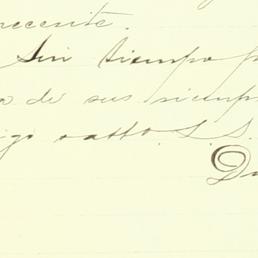 necesite.
Sin tiempo p
a de sus siempr
igo y atto. S. S.
D